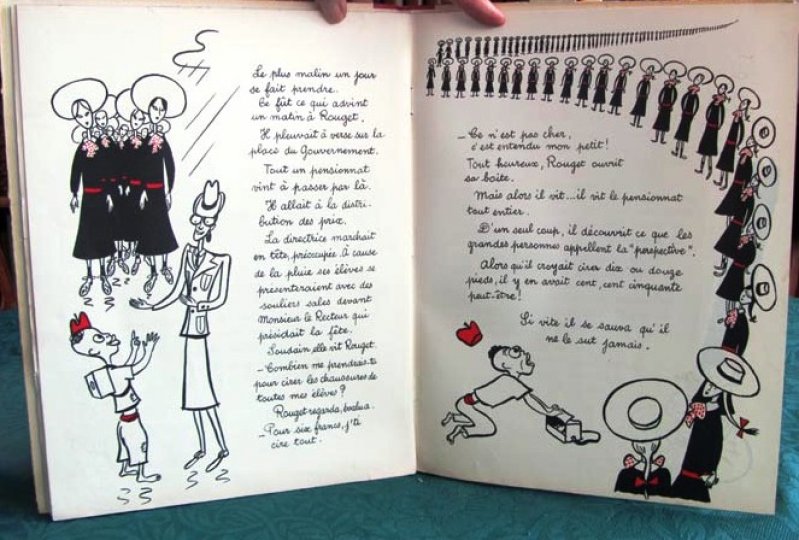 Le plus malin un jour
se fait prendre.
Ce fût ce qui advint
un matin à Rouget.
Il pleuvait à verse sur la
place du Gouvernement.
Tout un pensionnat
vint à passer par là.
Il allait à la distri-
bution des prix.
La directrice marchait
en tête, préoccupée. À cause
de la pluie ses élèves se
présenteraient avec des
souliers sales devant
Monsieur le Recteur qui
présidait la fête.
Soudain elle vit Rouget.
- Combien me prendrais-tu
pour cirer les chaussures de
toutes mes élèves ?
Rouget regarda, évalua.
- Pour six francs, j'te
cire tout.
- Ce n'est pas cher,
c'est entendu mon petit !
Tout heureux, Rouget ouvrit
sa boite.
Mais alors il vit... il vit le pensionnat
tout entier.
D'un seul coup, il découvrit ce que les
grandes personnes appellent la "perspective".
Alors qu'il croyait cirer dix ou douze
pieds, il y en avait cent, cent cinquante
peut-être !
Si vite il se sauva qu'il
ne le sut jamais.